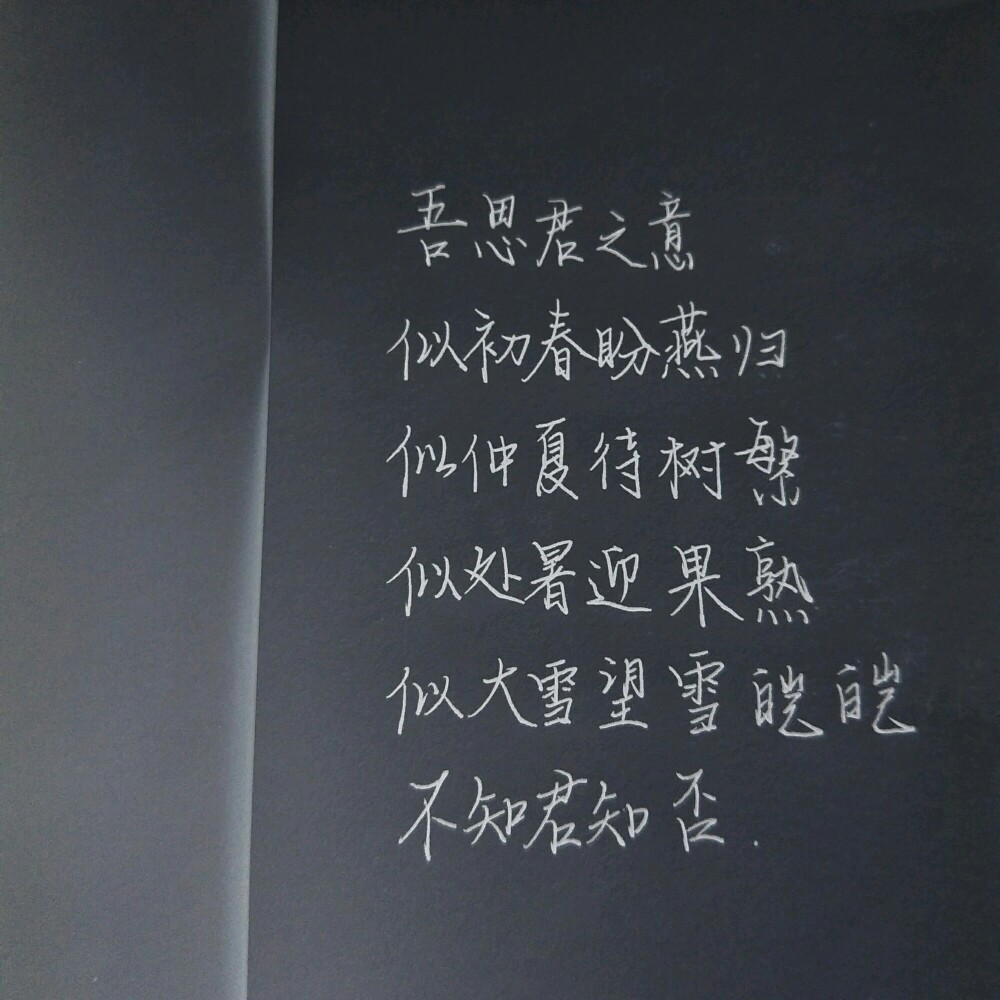 吾思君之意
似初春盼燕归
似仲夏待树繁
似处暑迎果熟
似大雪望雪皑皑
不知君知否.